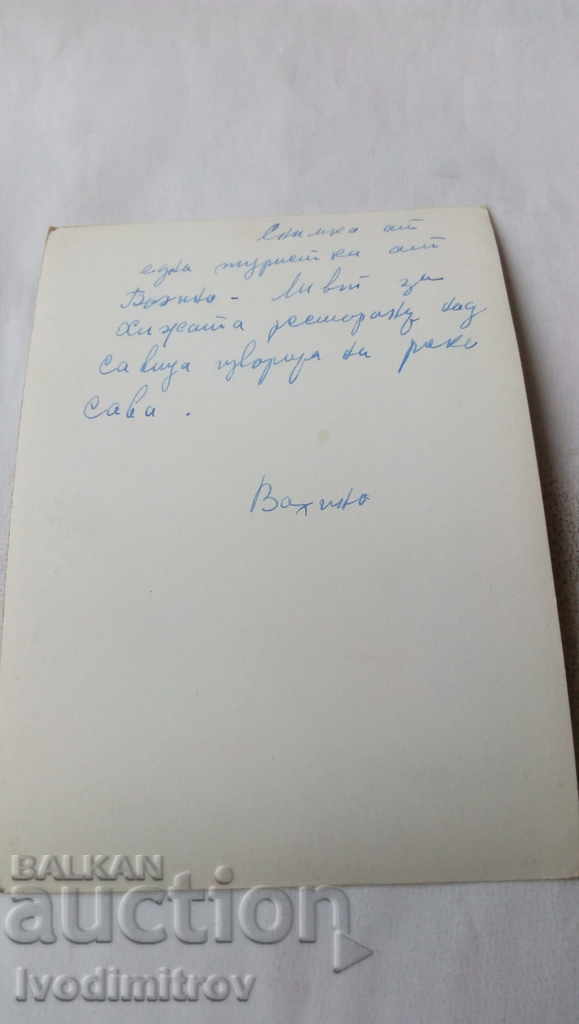 Снимка от
една туристка от
Вохино - Лифт за
Хижата ресторант над
Савица извора на река
Сава.
Вохино
BALKAN
auction
Ivodimitrov